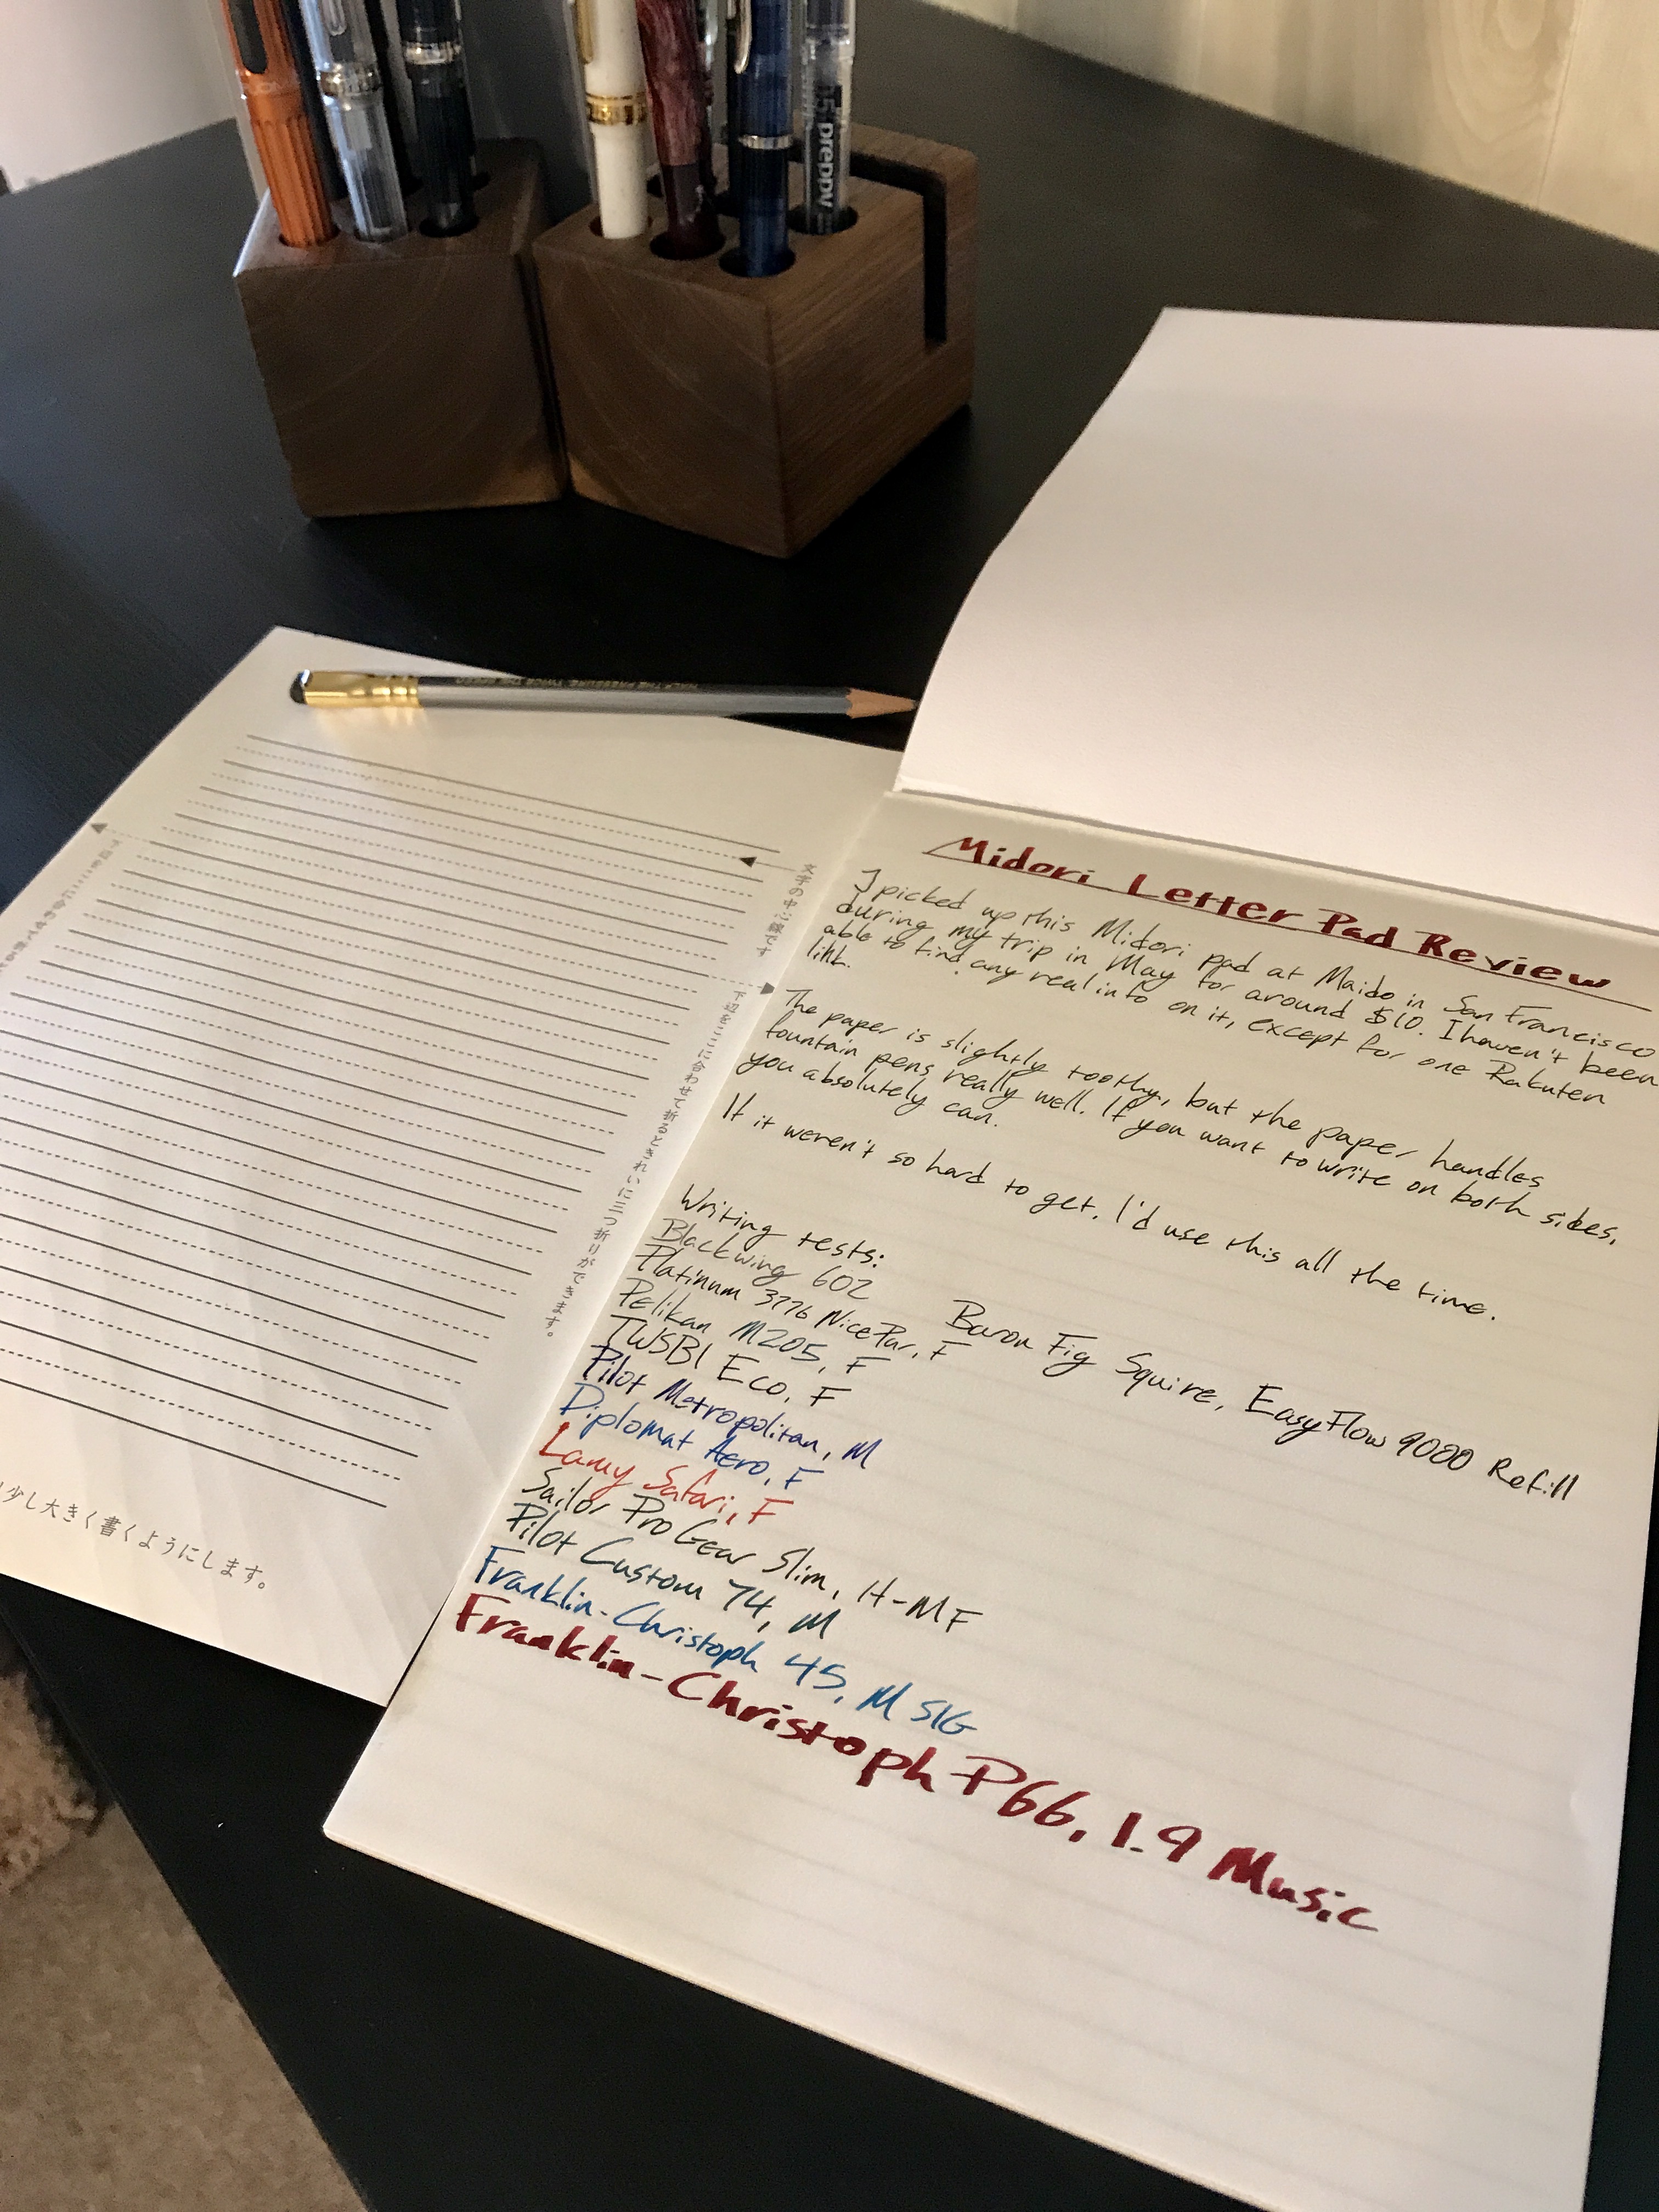 preppy
HALF THE PRESSURE, TWICE THE SPEED
Midori Letter Pad Review
I picked up this Midori pad at Maido in San Francisco
during my trip in May for around $10. I haven't been
able to find any real info on it, except for one Rakuten
link.
The paper is slightly toothy, but the paper handles
fountain pens really well. If you want to write on both sides,
you absolutely can.
If it weren't so hard to get, I'd use this all the time.
Writing tests:
Blackwing 602
Platinum 3776 Nice Pur, F
Baron Fig Squire, EasyFlow 9000 Refill
Pelikan M205, F
TWSBI Eco, F
Pilot Metropolitan, M
Diplomat Aero, F
Lamy Safari, F
Sailor Pro Gear Slim, H-MF
Pilot Custom 74, M
Franklin-Christoph 45, M SIG
Franklin-Christoph P66, 1.9 Music
下図の▷◁で折るときれいに三つ折りができます。
少し大きく書くようにします。